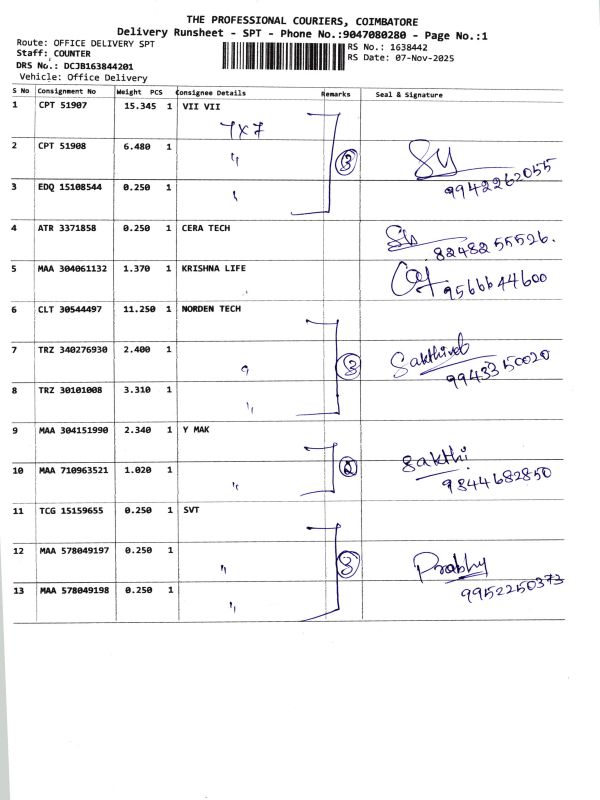 THE PROFESSIONAL COURIERS, COIMBATORE
Delivery Runsheet - SPT - Phone No.:9047080280 - Page No.:1
Route: OFFICE DELIVERY SPT
Staff: COUNTER
DRS No.: DCJB163844201
Vehicle: Office Delivery
RS No.: 1638442
RS Date: 07-Nov-2025
S No Consignment No Weight PCS Consignee Details Remarks Seal & Signature
1 CPT 51907 15.345 1 VII VII
7X7
2 CPT 51908 6.480 1 〃 3
9942262055
3 EDQ 15108544 0.250 1 〃
4 ATR 3371858 0.250 1 CERA TECH
8248255526.
5 MAA 304061132 1.370 1 KRISHNA LIFE
9566644600
6 CLT 30544497 11.250 1 NORDEN TECH
7 TRZ 340276930 2.400 1 〃 3 Sakthivel
9943350020
8 TRZ 30101008 3.310 1 〃
9 MAA 304151990 2.340 1 Y MAK
10 MAA 710963521 1.020 1 〃 2 Sakthi
9844682850
11 TCG 15159655 0.250 1 SVT
12 MAA 578049197 0.250 1 〃 3 Prabhy
9952250373
13 MAA 578049198 0.250 1 〃